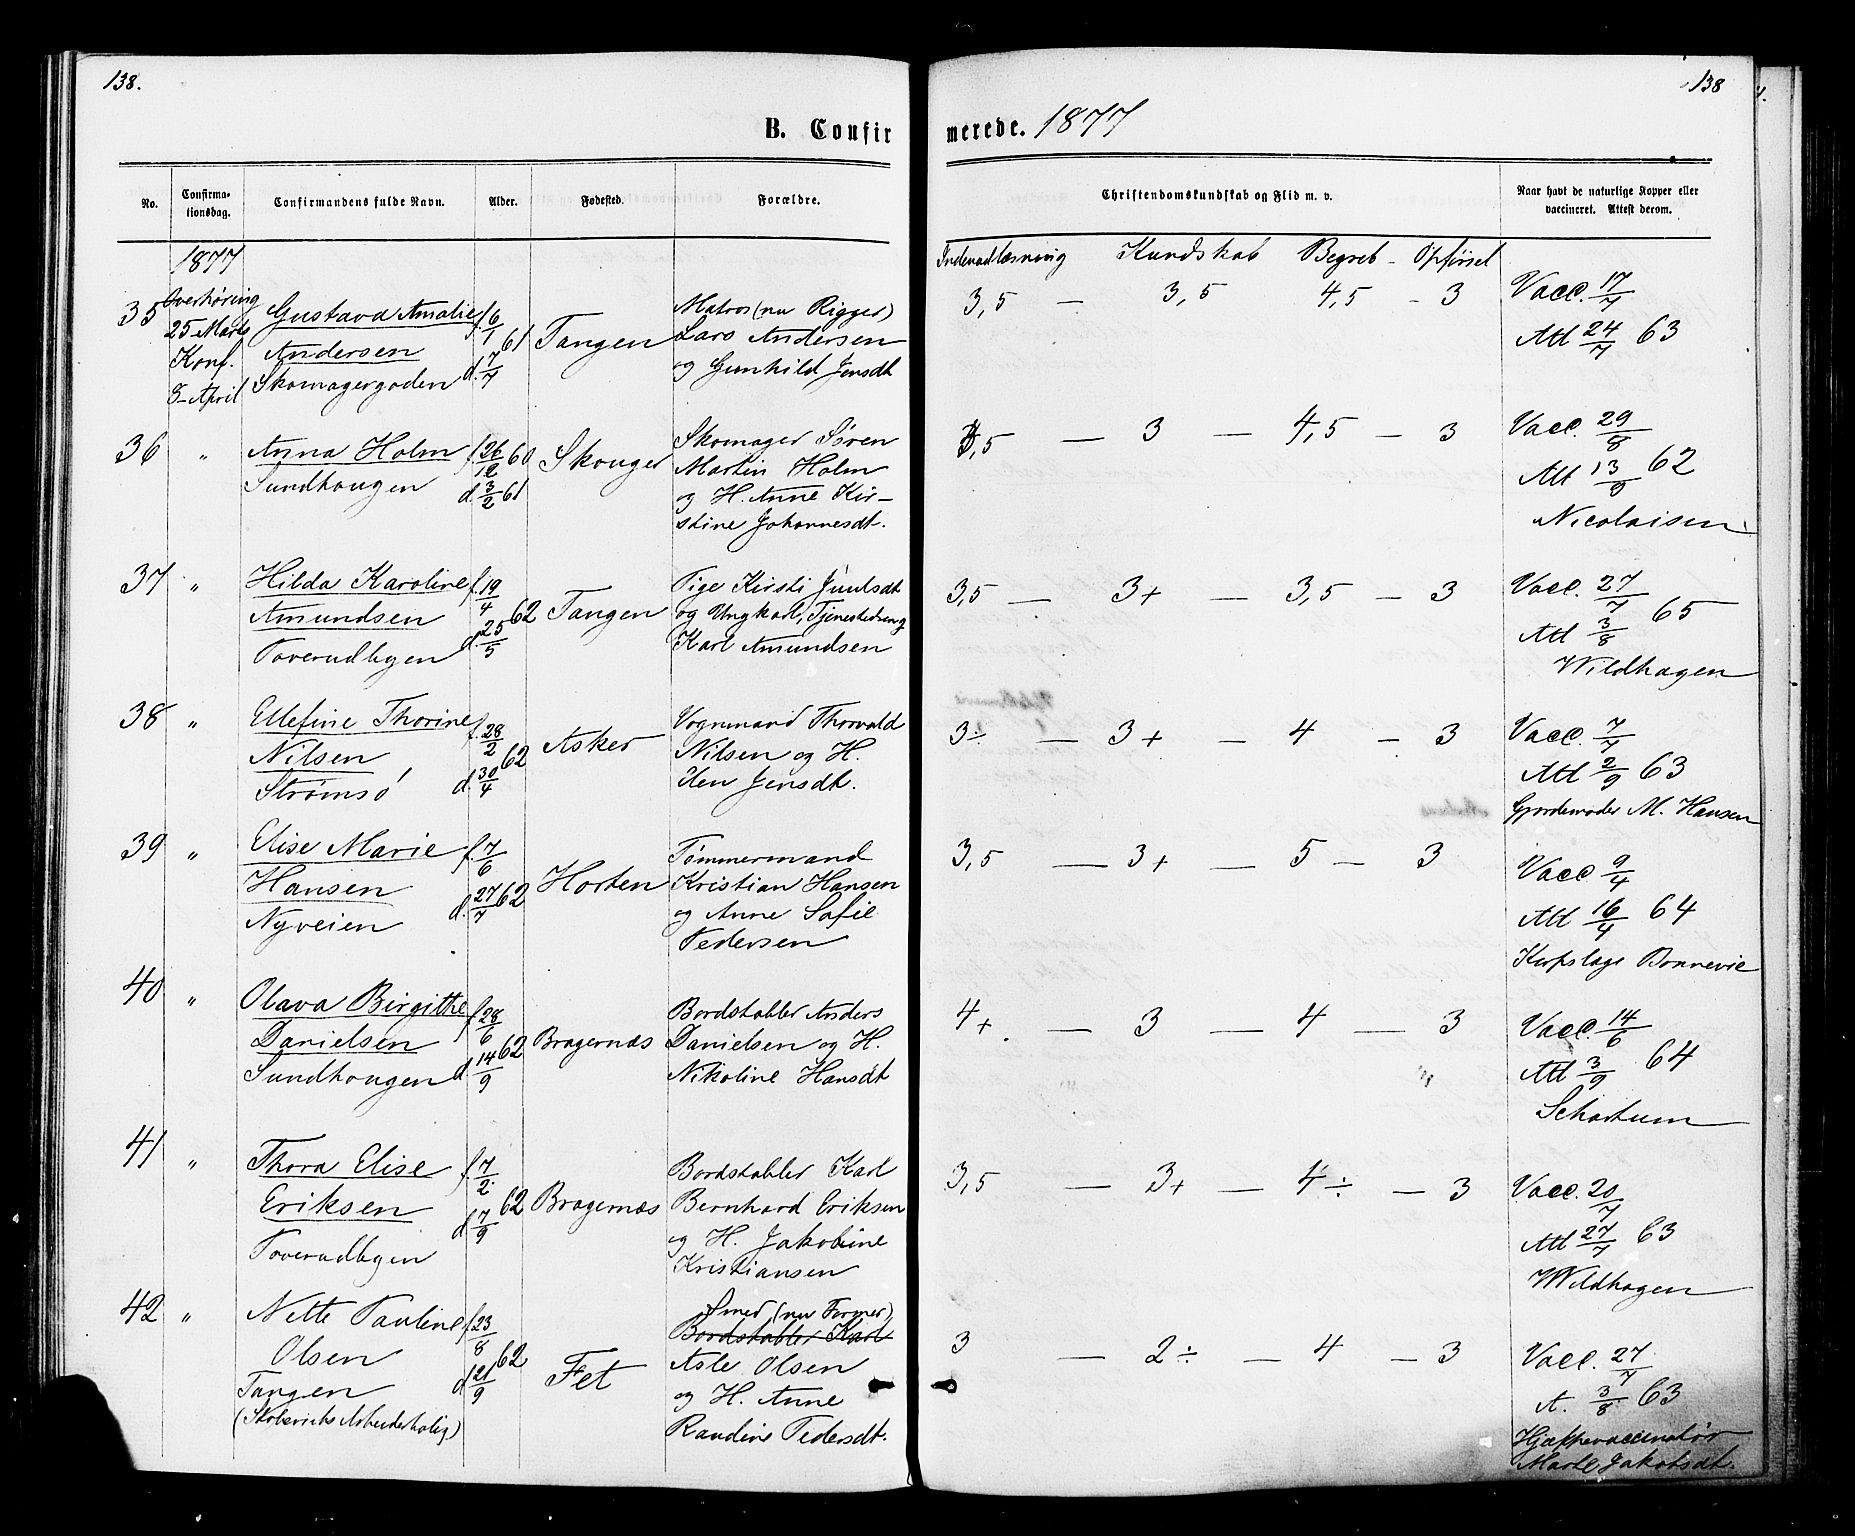 138.
138
B. Confir
merede. 1877
No.
Confirma-
tionsdag.
Confirmandens fulde Navn.
Alder.
Fødested.
Forældre.
Christendomskundskab og Flid m. v.
Naar havt de naturlige Kopper eller
vaccineret. Attest derom.
1877
Indenadlæsning Kundskab Begreb - Opførsel
35
Overhøring
25 Marts
Konf.
3 April
Gustava Amalie
Andersen
Skomagergaden
f. 6/1 61
d. 7/7
Tangen
Matros (nu Rigger)
Lars Andersen
og Gunhild Jensdt
3,5 — 3,5 4,5 - 3
Vacc. 17/7
Att 24/7 63
36
"
Anna Holm
Sundhaugen
f. 26/12 60
d. 3/2 61
Skouger
Skomager Søren
Martin Holm
og H. Anne Kir-
stine Johannesdt.
3,5 — 3 — 4,5 — 3
Vacc. 29/8
Att 13/9 62
Nicolaisen
37
"
Hilda Karoline
Amundsen
Toverudbyen
f. 19/4 62
d. 25/5
Tangen
Pige Kirsti Juulsdt
og Ungkarl, Tjenestedreng
Karl Amundsen
3,5 — 3+ — 3,5 — 3
Vacc. 27/7
Att 3/8 65
Wildhagen
38
"
Ellefine Thorine
Nilsen
Strømsø
f. 28/2 62
d. 30/4
Asker
Vognmand Thorvald
Nilsen og H.
Jensdt.
3÷ — 3+ — 4 — 3
Vacc. 7/7
Att 2/9 63
Gjordemoder M. Hansen
39
"
Elise Marie
Hansen
Nyveien
f. 7/6
d. 27/7 62
Horten
Tømmermand
Kristian Hansen
og Anne Sofie
Pedersen
3,5 — 3+ — 5 — 3
Vacc 9/4
Att 16/4 64
Korpslæge Bonnevie
40
"
Olava Birgithe
Danielsen
Sundhaugen
f. 28/6 62
d. 14/9
Bragernæs
Bordstabler Anders
Danielsen og H.
Nikoline Hansdt
4+ — 3 — 4 — 3
Vacc. 14/6
Att 3/9 64
Schartum
41
"
Thora Elise
Eriksen
Toverudbyen
f. 7/2 62
d. 7/9
Bragernæs
Bordstabler Karl
Bernhard Eriksen
og H. Jakobine
Kristiansen
3,5 — 3+ — 4÷ — 3
Vacc. 20/7
Att 27/7 63
Wildhagen
42
"
Nette Pauline
Olsen
Tangen
f. 23/8 62
d. 21/9
Fet
Smed (nu Former)
Bordstabler Karl
Asle Olsen
og H. Anne
Randine Pedersdt.
3 — 2÷ — 4 — 3
Vacc. 27/7
A. 3/8 63
Hjælpevaccinatør
Marte Jakobsdt.